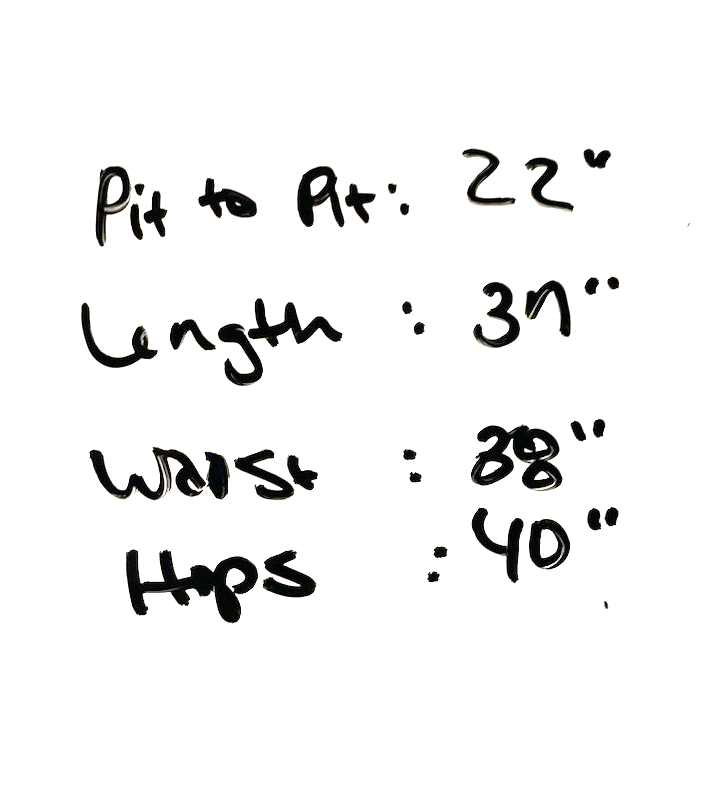 Pit to Pit: 22"
Length : 37"
Waist : 38"
Hips : 40"